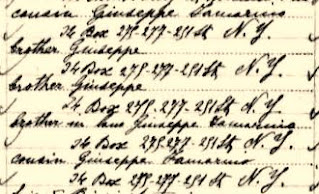 cousin Giuseppe Tamarino
74 Box 275-277-251 St N. Y.
brother Giuseppe
74 Box 275-277-251 St N. Y.
brother Giuseppe
74 Box 275-277-251 St N. Y.
brother in law Giuseppe
74 Box 275-277-251 St N. Y.
cousin Giuseppe Tamarino
74 Box 275-277-251 St N. Y.